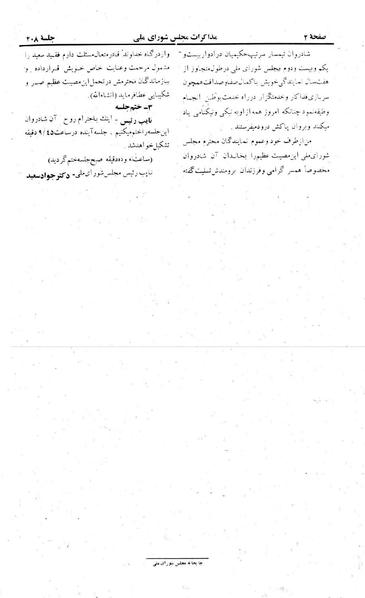 صفحهٔ ۲
مذاکرات مجلس شورای ملی
جلسهٔ ۲۰۸
شادروان تیمسار سرتیپ حکیمیان در ادوار بیست و
یکم و بیست و دوم مجلس شورای ملی در طول متجاوز از
هفت سال نمایندگی خویش با کمال صفا و صداقت همچون
سربازی فداکار و خدمتگزار در راه خدمت بوطن انجام
وظیفه نمود چنانکه امروز همه از او به نیکی و نیکنامی یاد
میکنند و بروان پاکش درود میفرستند.
من از طرف خود و عموم نمایندگان محترم مجلس
شورای ملی این مصیبت عظیم را بخاندان آن شادروان
مخصوصاً همسر گرامی و فرزندان برومندش تسلیت گفته
و از درگاه خداوند قادر متعال مسئلت دارم فقید سعید را
مشمول مرحمت و عنایت خاص خویش قرار داده و
ببازماندگان محترمش در تحمل این مصیبت عظیم صبر و
شکیبایی عطا فرماید (انشاءالله)
۳- ختم جلسه
نایب رئیس - اینک باحترام روح آن شادروان
این جلسه را ختم میکنیم. جلسه آینده در ساعت ۹/۴۵ دقیقه
تشکیل خواهد شد
(ساعت ده دقیقه صبح جلسه ختم گردید)
نایب رئیس مجلس شورای ملی - دکتر جواد سعید
چاپخانه مجلس شورای ملی